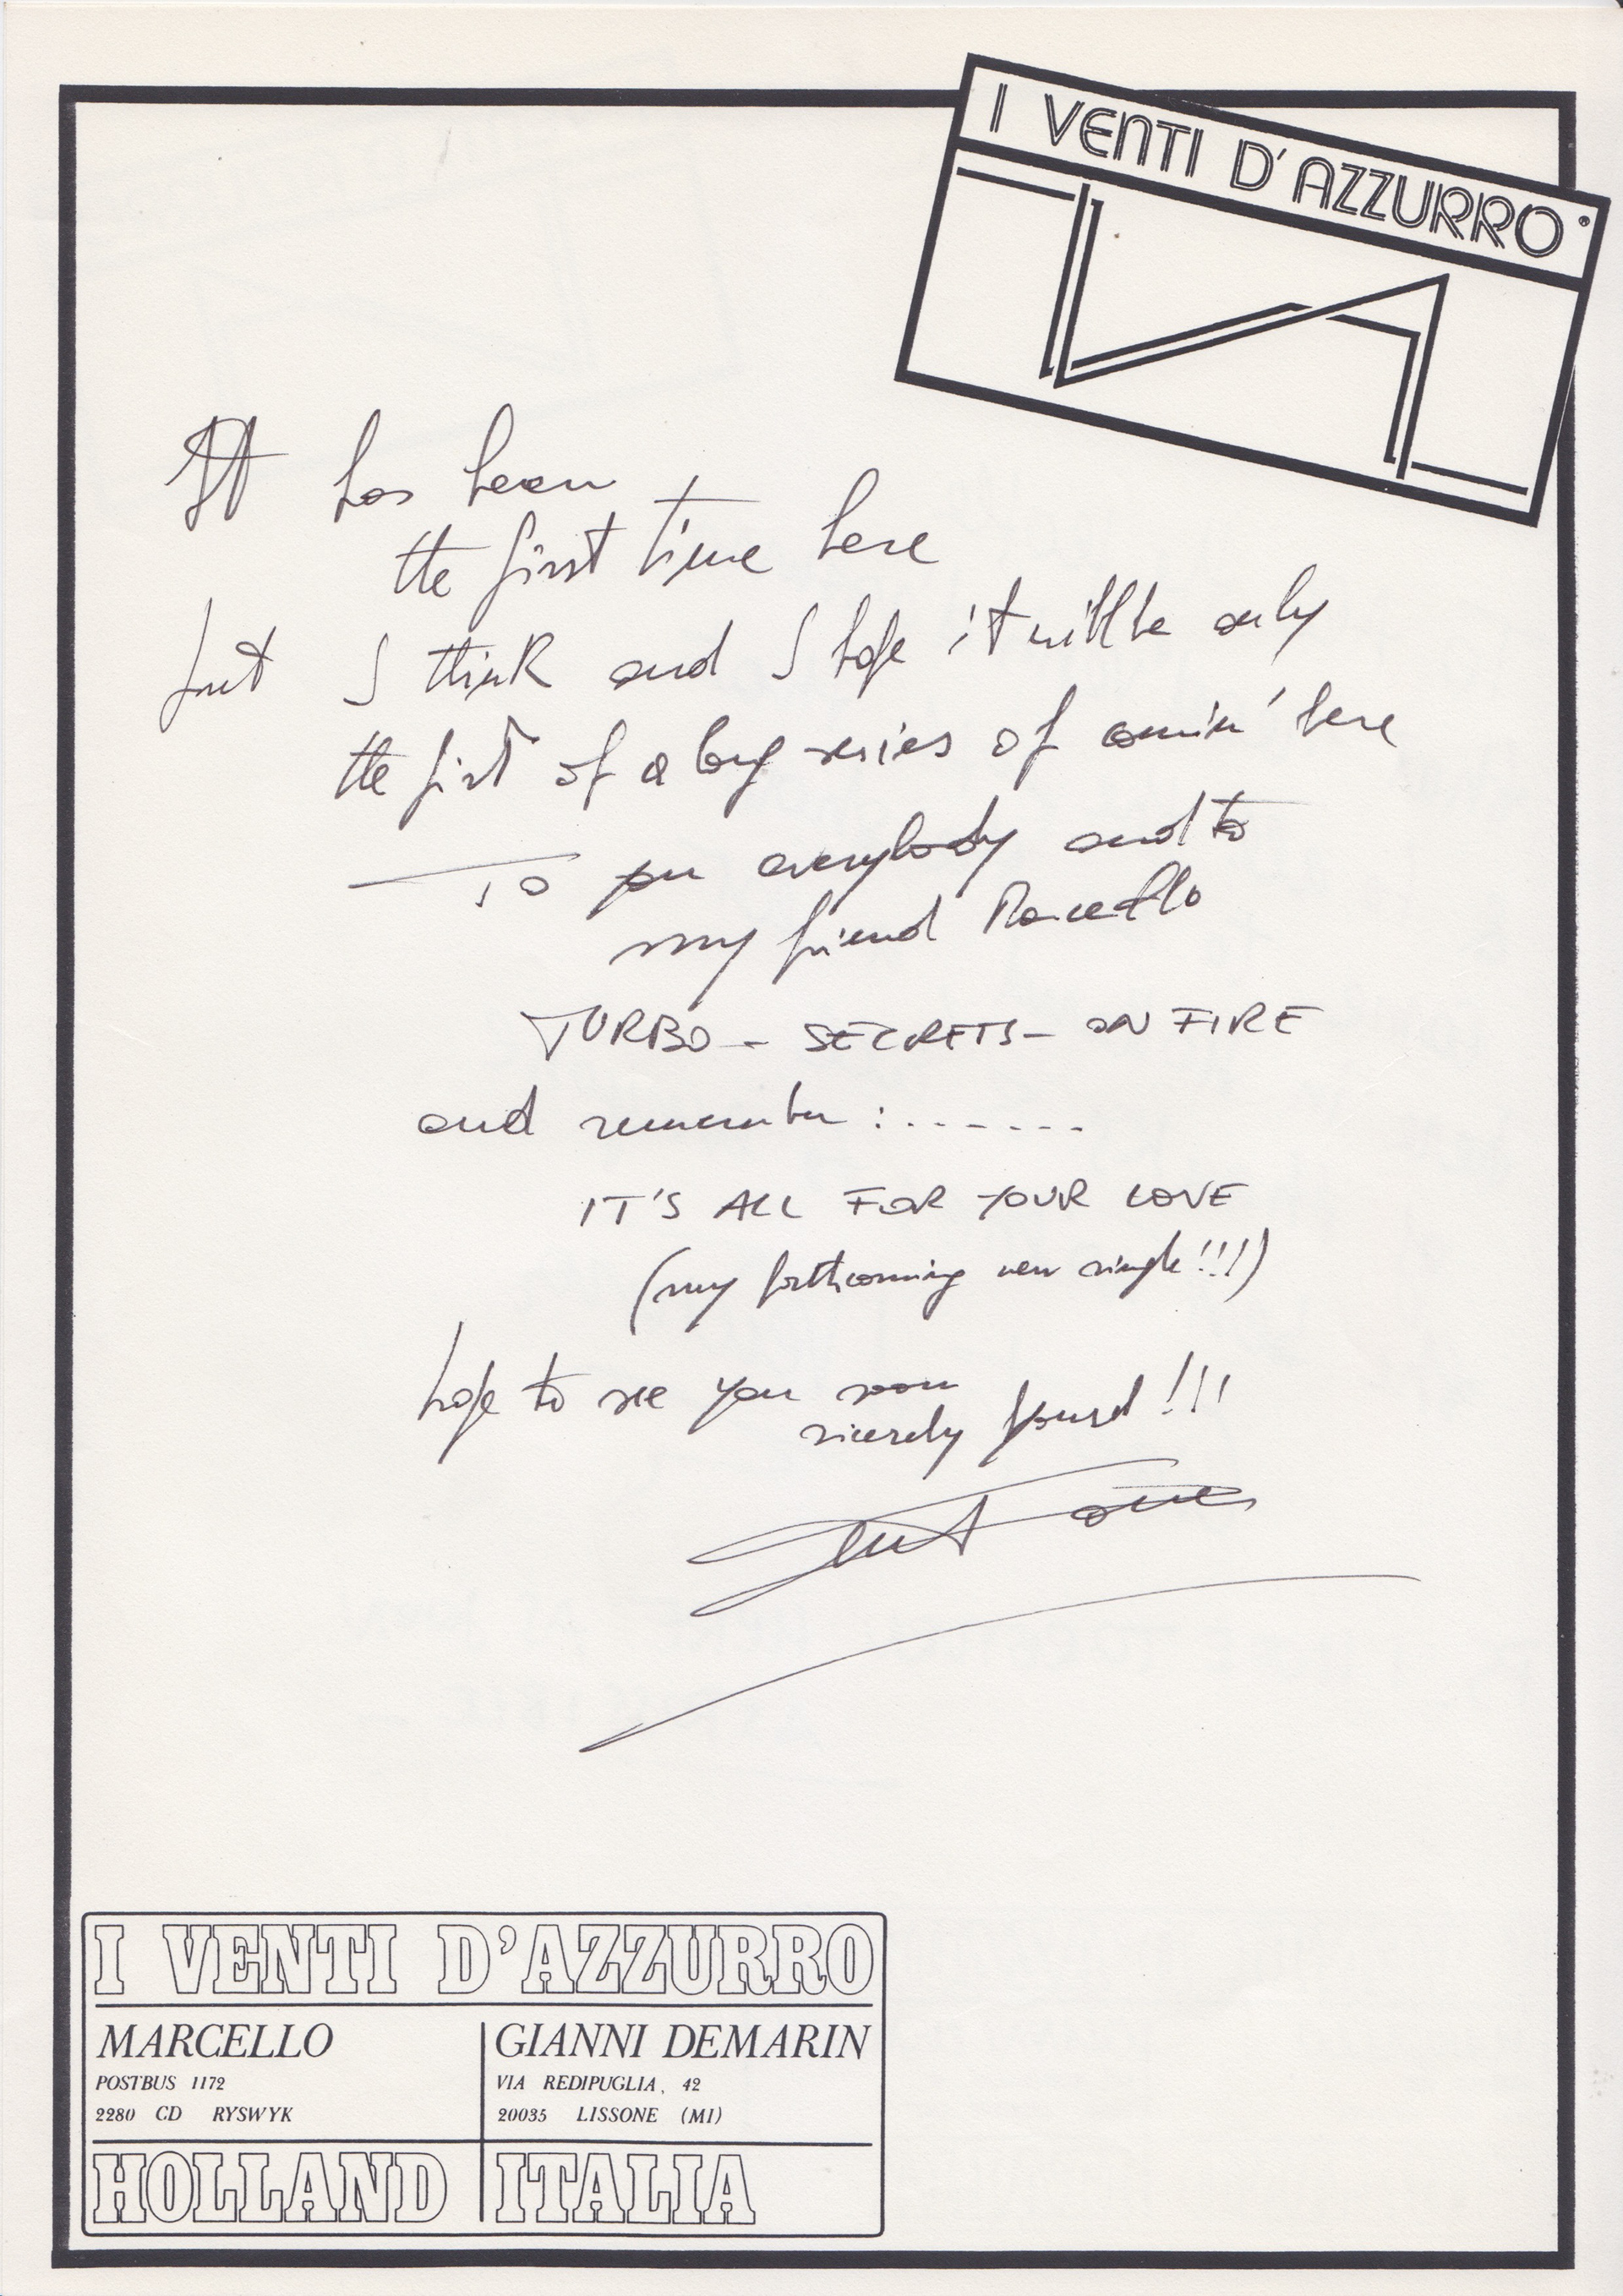 I VENTI D'AZZURRO
It has been
the first time here
but I think and I hope it will be only
the first of a long series of comin' here
To you everybody and to
my friend Marcello
TURBO - SECRETS - ON FIRE
and remember : .......
IT'S ALL FOR YOUR LOVE
(my forthcoming new single!!!)
hope to see you soon
sicerely yours!!!
I VENTI D'AZZURRO
MARCELLO
POSTBUS 1172
2280 CD RYSWYK
HOLLAND
GIANNI DEMARIN
VIA REDIPUGLIA, 42
20035 LISSONE (MI)
ITALIA